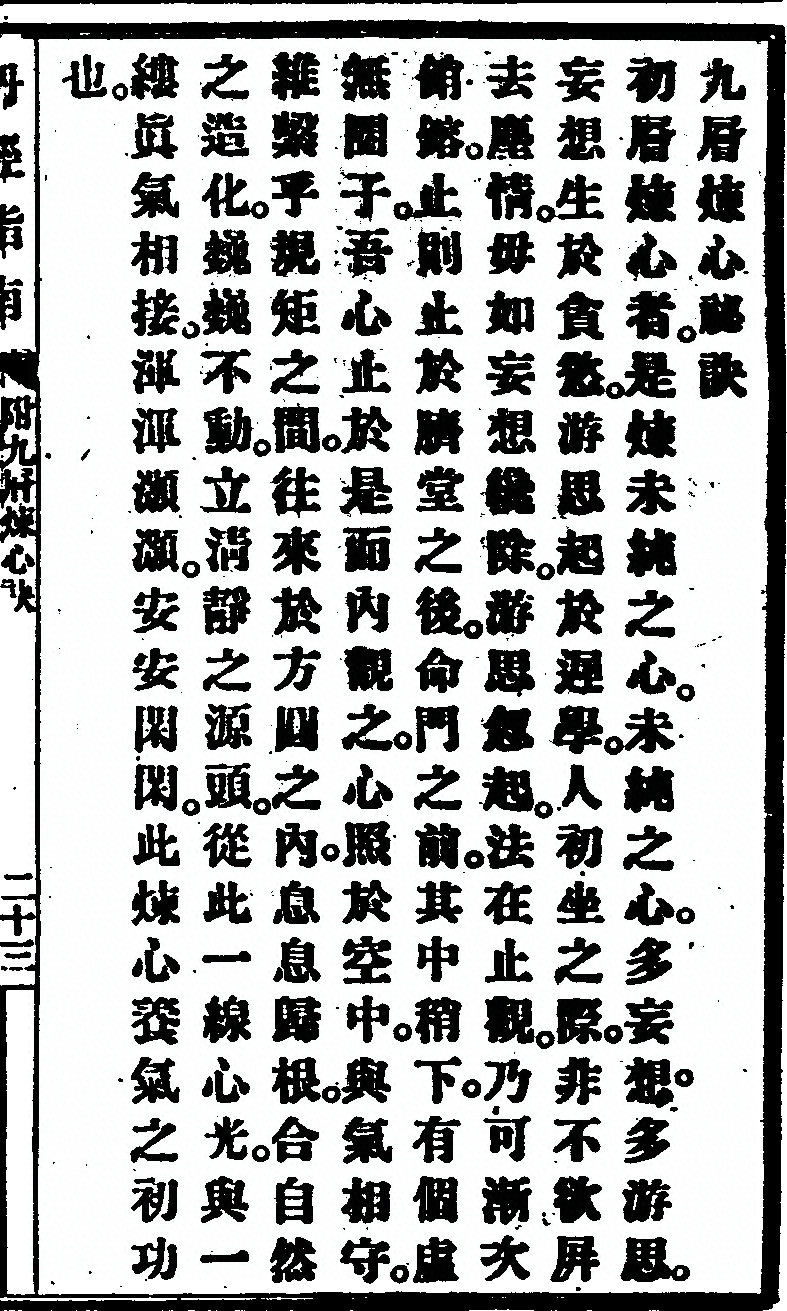 九層煉心祕訣
初層煉心者。是煉未純之心。未純之心。多妄想。多游思。
妄想生於貪慾。游思起於遲學。人初坐之際。非不欲屏
去塵情。毋如妄想纔除。游思忽起。法在止觀。乃可漸次
銷鎔。止則止於臍堂之後。命門之前。其中稍下。有個虛
無圈子。吾心止於是而內觀之。心照於空中。與氣相守。
維繫乎規矩之間。往來於方圓之內。息息歸根。合自然
之造化。巍巍不動。立清靜之源頭。從此一線心光。與一
縷眞氣相接。渾渾灝灝。安安閑閑。此煉心養氣之初功
也。
丹經指南 附九層煉心訣 二十三